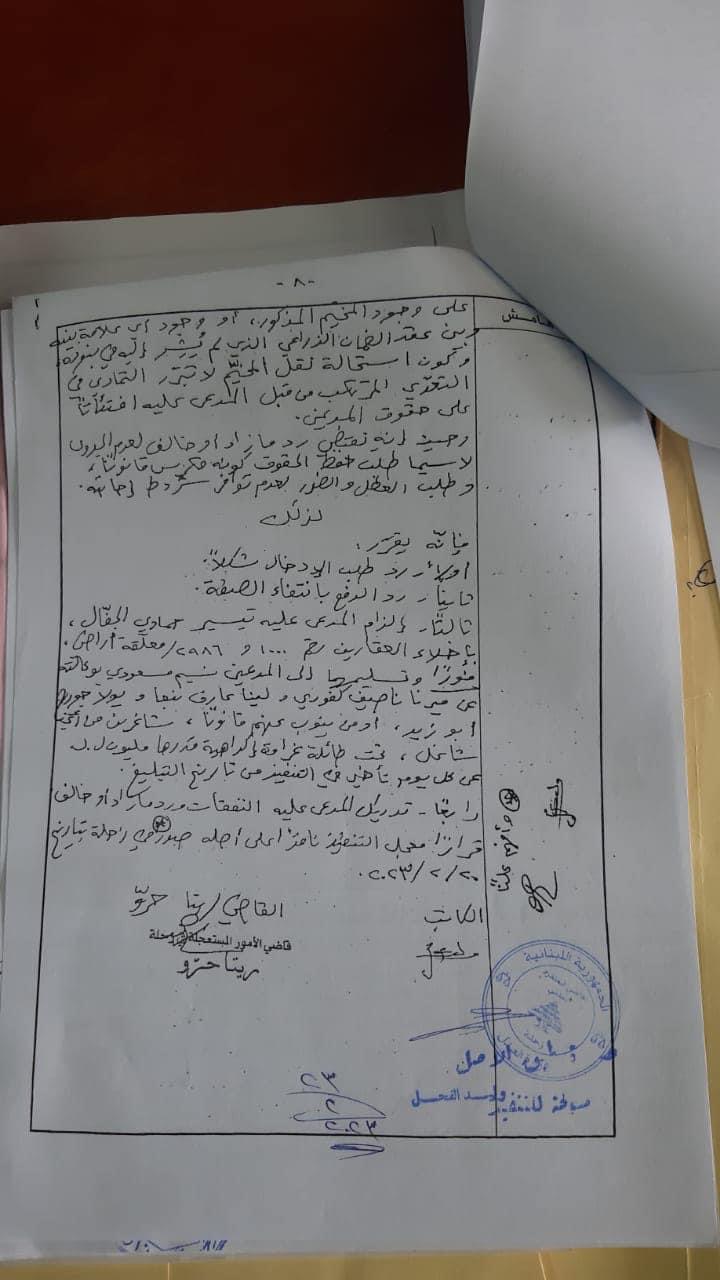 -٨-
هامش
على وجود المخيّم المذكور، أو وجود أي علاقة بينه
وبين عقد الضمان الزراعي الذي لم يُشر إليه في
وتكون استحالة نقل المخيّم لا تبرّر التمادي في
التعدّي المرتكب من قبل المدعى عليه افتئاتاً
على حقوق المدعين.
وحيث إنه يقتضي رد ما زاد أو خالف لعدم الجدوى
لا سيما طلب حفظ الحقوق كونه مكرس قانوناً،
وطلب العطل والضرر لعدم توافر شروط إجابته.
لذلك
فإنّه يقرّر:
أولاً- رد طلب الإدخال شكلاً.
ثانياً- رد الدفع بانتفاء الصفة.
ثالثاً- إلزام المدعى عليه تيسير حمادي الجفّال،
بإخلاء العقارين رقم ١٠٠٠ و ٢٩٨٦/معلقة أراضي،
فوراً وتسليمهما إلى المدعين نسيم مسعودي بوكالته
عن ميرنا ناصيف كفوري ولينا عارف ننفا و يولا جورج
أبو زيد، أو من ينوب عنهم قانوناً، شاغرين من أي
شاغل، تحت طائلة غرامة إكراهية قدرها مليون ل.ل.
عن كل يوم تأخير في التنفيذ من تاريخ التبليغ.
رابعاً- تدريك المدعى عليه النفقات ورد ما زاد أو خالف
قراراً معجل التنفيذ نافذاً على أصله صدر في زحلة بتاريخ
٢٠٢٣/٢/٢٠.
وأفهم علناً
الكاتب
القاضي/ريتا حرّو
قاضي الأمور المستعجلة في زحلة
ريتا حرّو
الجمهورية اللبنانية
زحلة
الأصل
صالحة للتنفيذ
٢٣
٢
٢٠٢٣